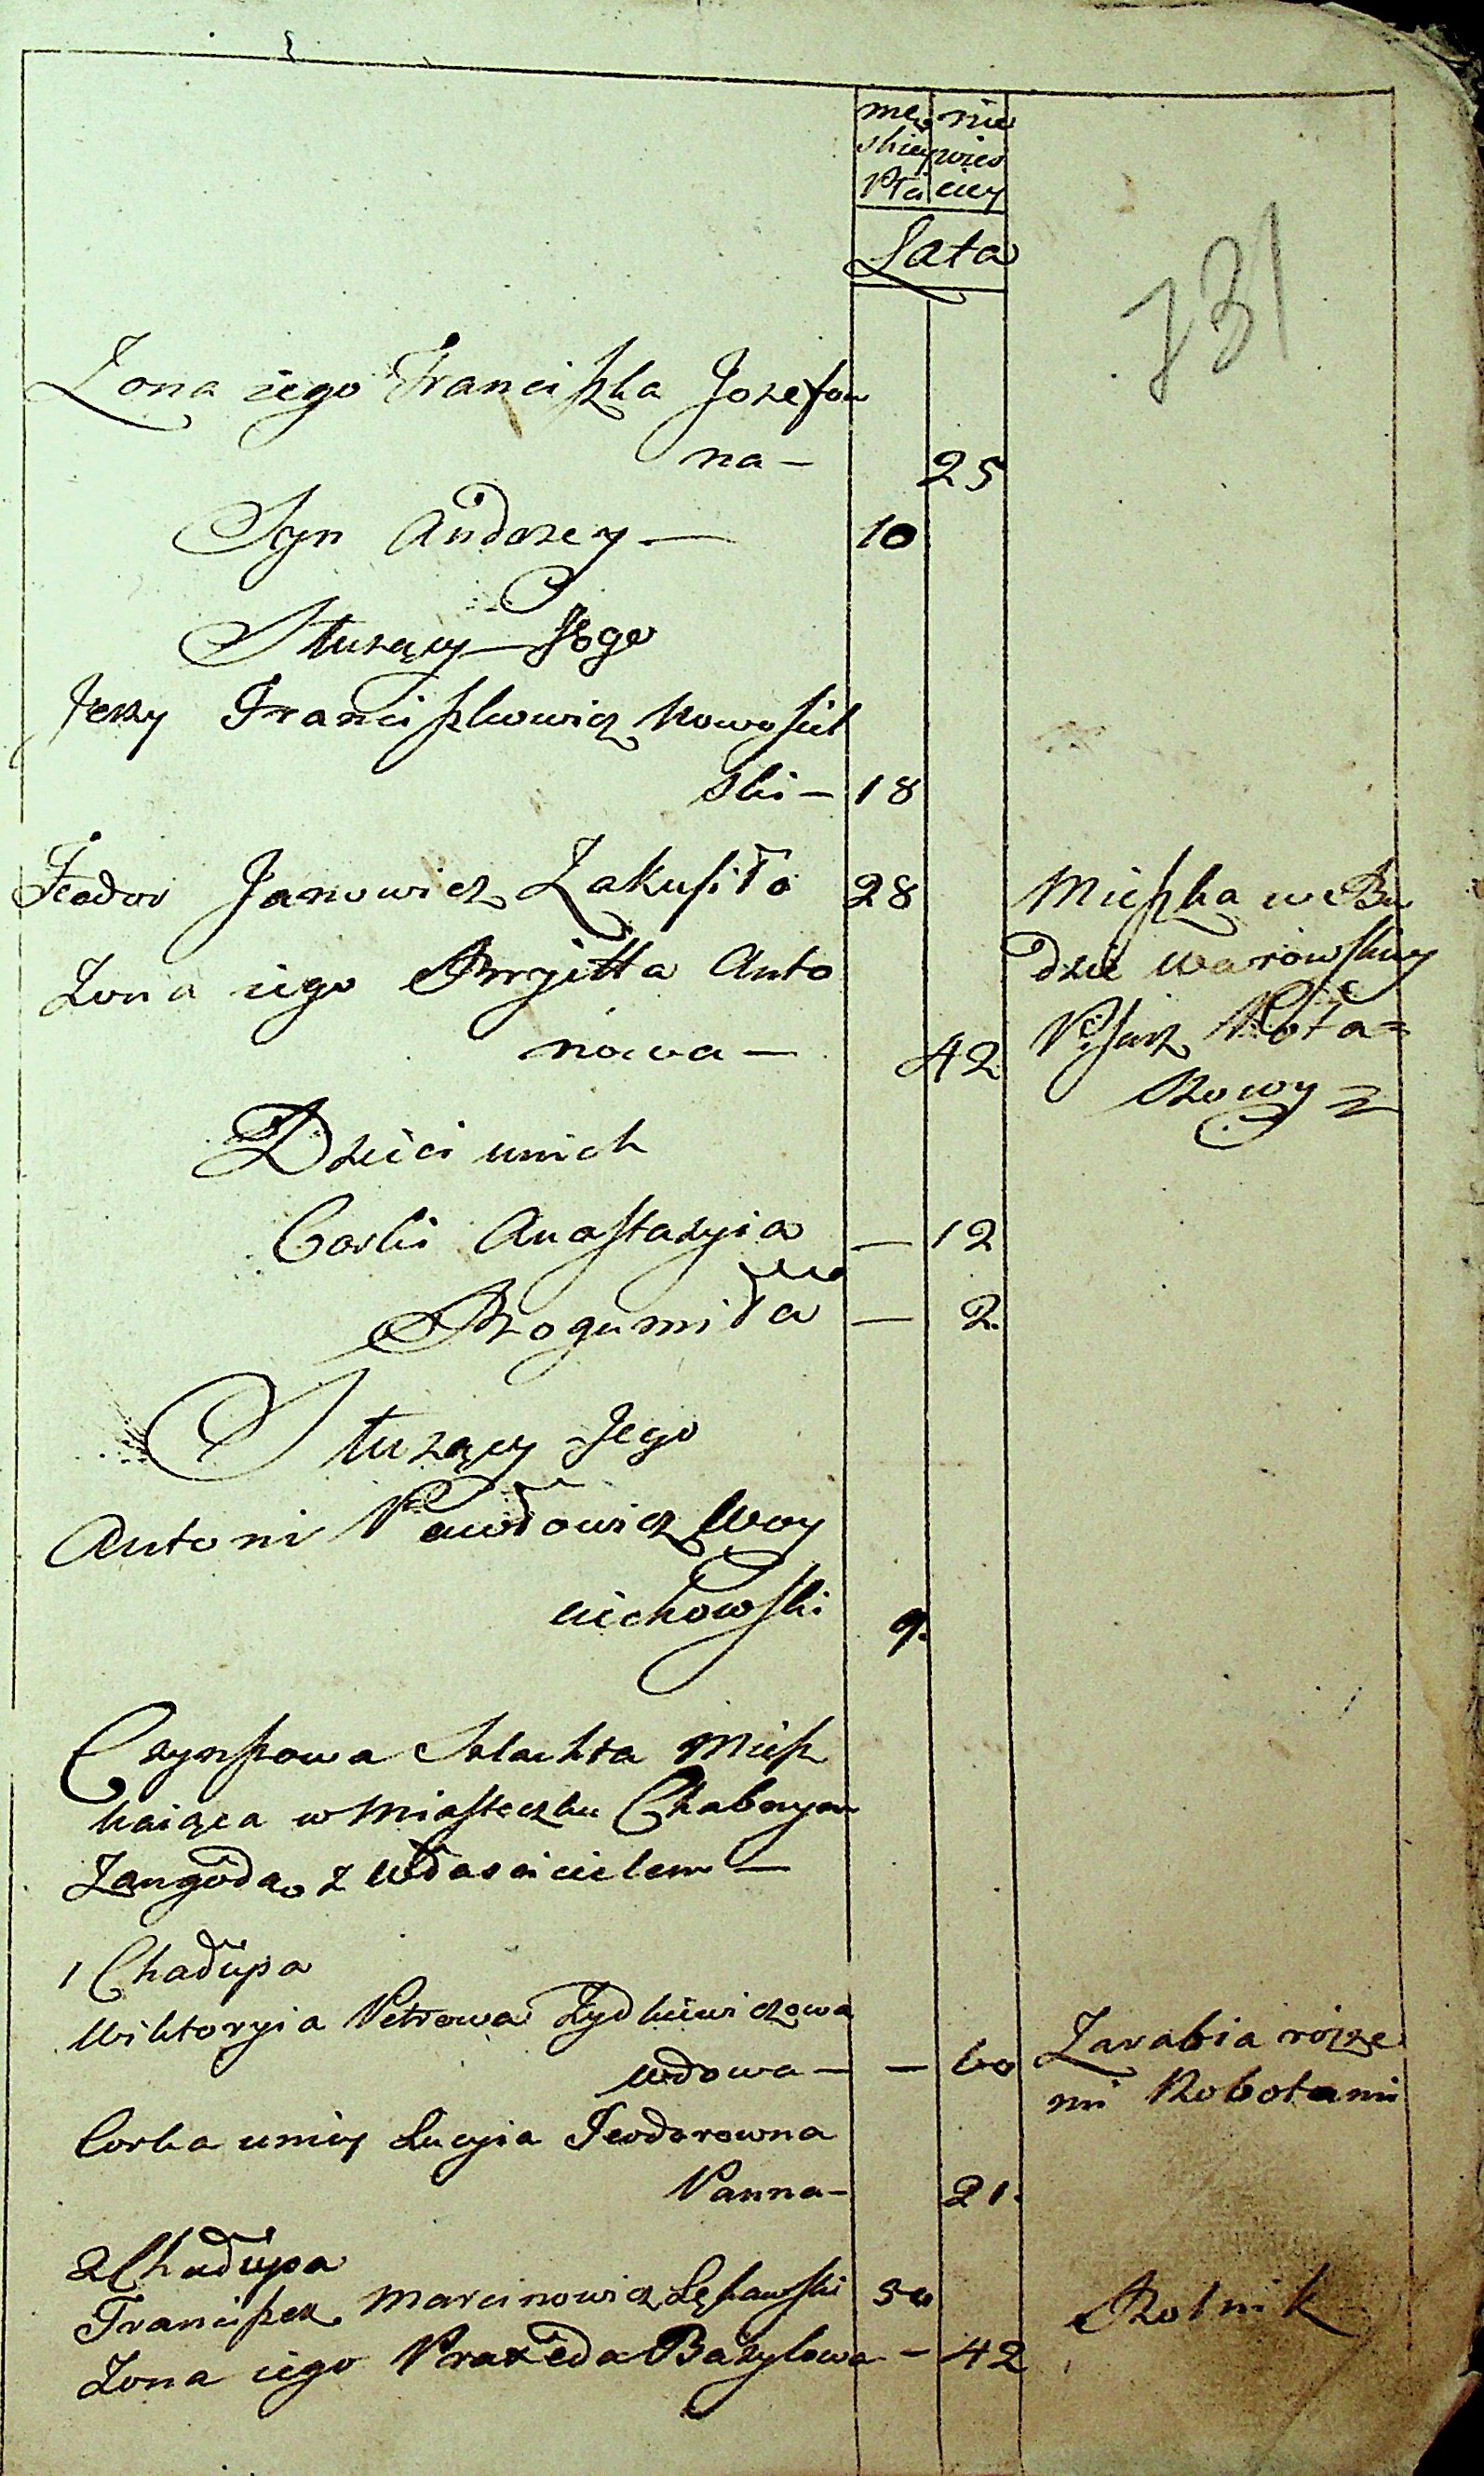 męs nie
skiey wies
Płci ciey
Lata
731
Zona iego Franciszka Jozefow
na — 25
Syn Andrzey — 10
Służący Jego
Jerzy Franciszkowicz Nowosiel
ski — 18
Feodor Janowicz Zakusiło 28
Mieszka w Bu
Zona iego Brygitta Anto
dzie Warowskiey
nowa — 42
Pisarz Pota=
Dzieci u nich
zowy
Corki Anastazyia — 12
Bogumiła — 2.
Służący Jego
Antoni Pawłowicz Woy
ciechowski 9.
Czynszowa Szlachta Miesz
kaiąca w Miasteczku Chabnym
Za ugodą z Właścicielem —
1 Chałupa
Wiktoryia Petrowa Zydkiewiczowa
wdowa — — 60
Zarabia rożne
mi Robotami
Corka u niey Lucyia Teodorowna
Panna — 21.
2 Chałupa
Franciszek Marcinowicz Lękawski 50
Rolnik
Zona iego Praxeda Bazylowa — 42